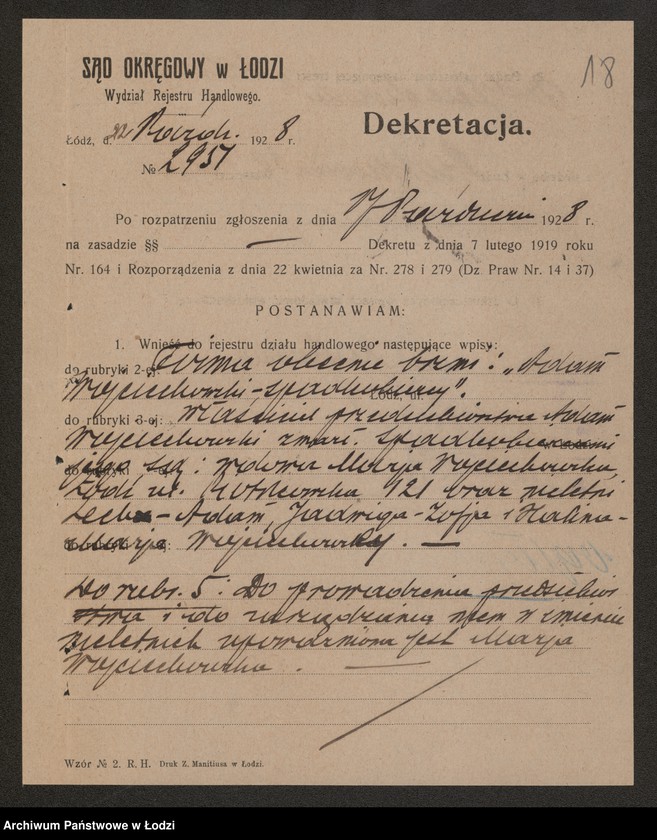 18
SĄD OKRĘGOWY w ŁODZI
Wydział Rejestru Handlowego.
Łódź, d. 22 Paźdz. 1928 r.
№ 2951
Dekretacja.
Po rozpatrzeniu zgłoszenia z dnia 17 Październ 1928 r.
na zasadzie §§ — Dekretu z dnia 7 lutego 1919 roku
Nr. 164 i Rozporządzenia z dnia 22 kwietnia za Nr. 278 i 279 (Dz. Praw Nr. 14 i 37)
POSTANAWIAM:
1. Wnieść do rejestru działu handlowego następujące wpisy:
do rubryki 2-ej: Firma obecnie brzmi: „Adam
Wojciechowski-spadkobiercy".
do rubryki 3-ej: Właściciel przedsiębiorstwa Adam
Wojciechowski zmarł. Spadkobiercami
jego są: wdowa Marja Wojciechowska,
Łódź ul. 121 oraz nieletni
Lech-Adam, Jadwiga-Zofja i Halina-
Marja Wojciechowscy. —
Do rubr. 5: Do prowadzenia przedsiębior
stwa i do zarządzania niem w imieniu
nieletnich upoważniona jest Marja
Wojciechowska. —
Wzór № 2. R. H. Druk Z. Manitiusa w Łodzi.
Archiwum Państwowe w Łodzi